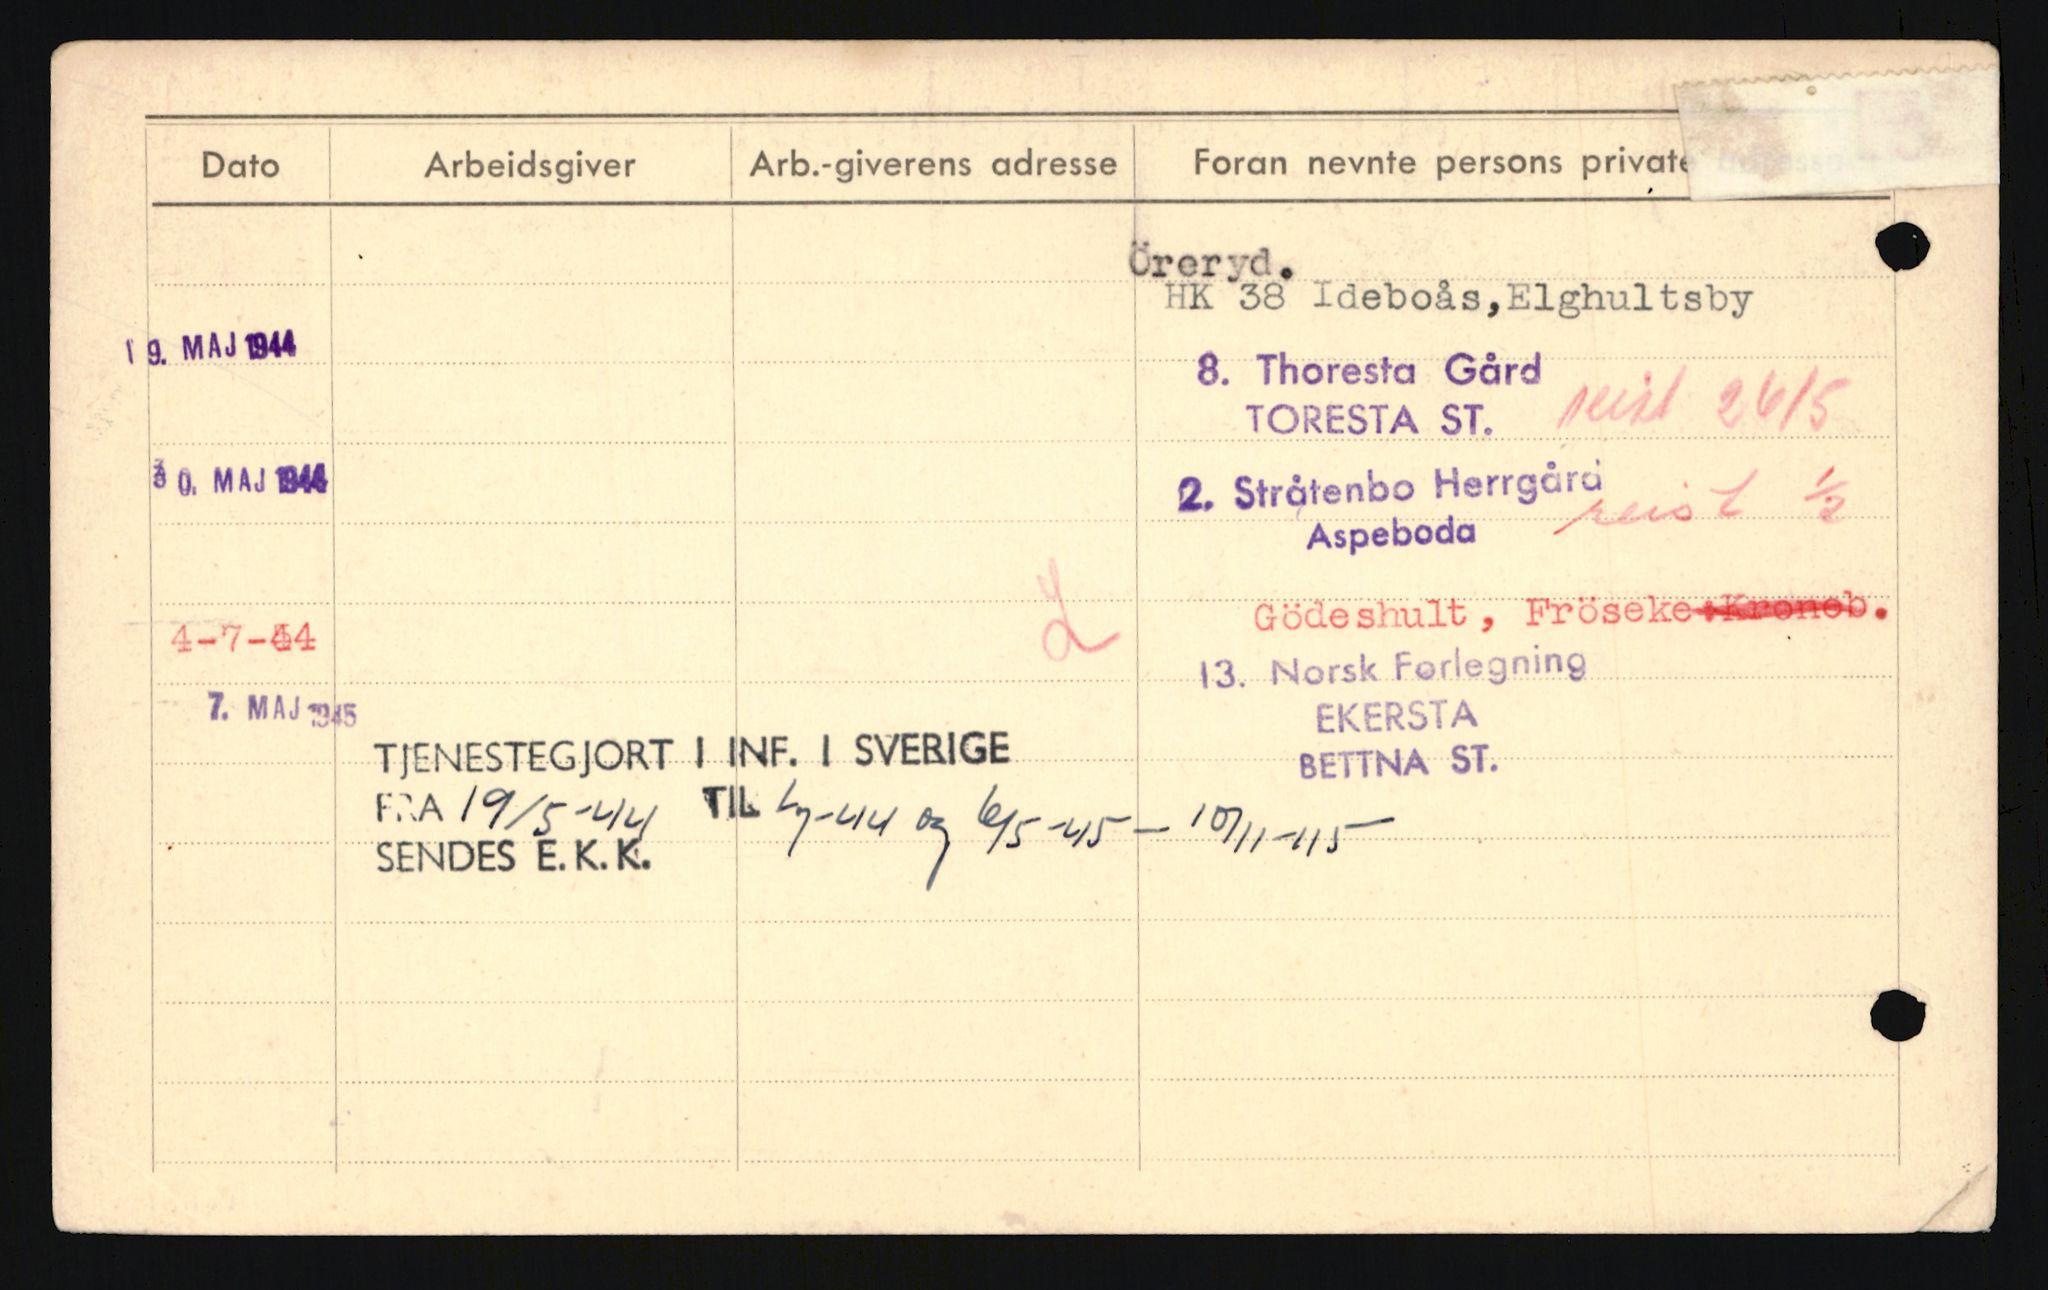 Dato Arbeidsgiver Arb.-giverens adresse Foran nevnte persons private adresse
Öreryd.
HK 38 Ideboås, Elghultsby
19. MAJ 1944
8. Thoresta Gård
TORESTA ST. reist 26/5
30. MAJ 1944
2. Stråtenbo Herrgård
Aspeboda reist
Gödeshult, Fröseke. Kroneb.
4-7-44
13. Norsk Forlegning
7. MAJ 1945
EKERSTA
TJENESTEGJORT I INF. I SVERIGE
BETTNA ST.
FRA 19/5-44 TIL og 6/5-45 — 10/11-45
SENDES E.K.K.